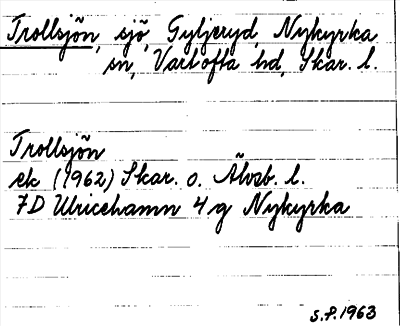 Trollsjön, sjö, Gyljeryd, Nykyrka
sn, Vartofta hd, Skar. l.
Trollsjön
ek (1962) Skar. o. Älvsb. l.
7D Ulricehamn 4 g Nykyrka
S.P. 1963